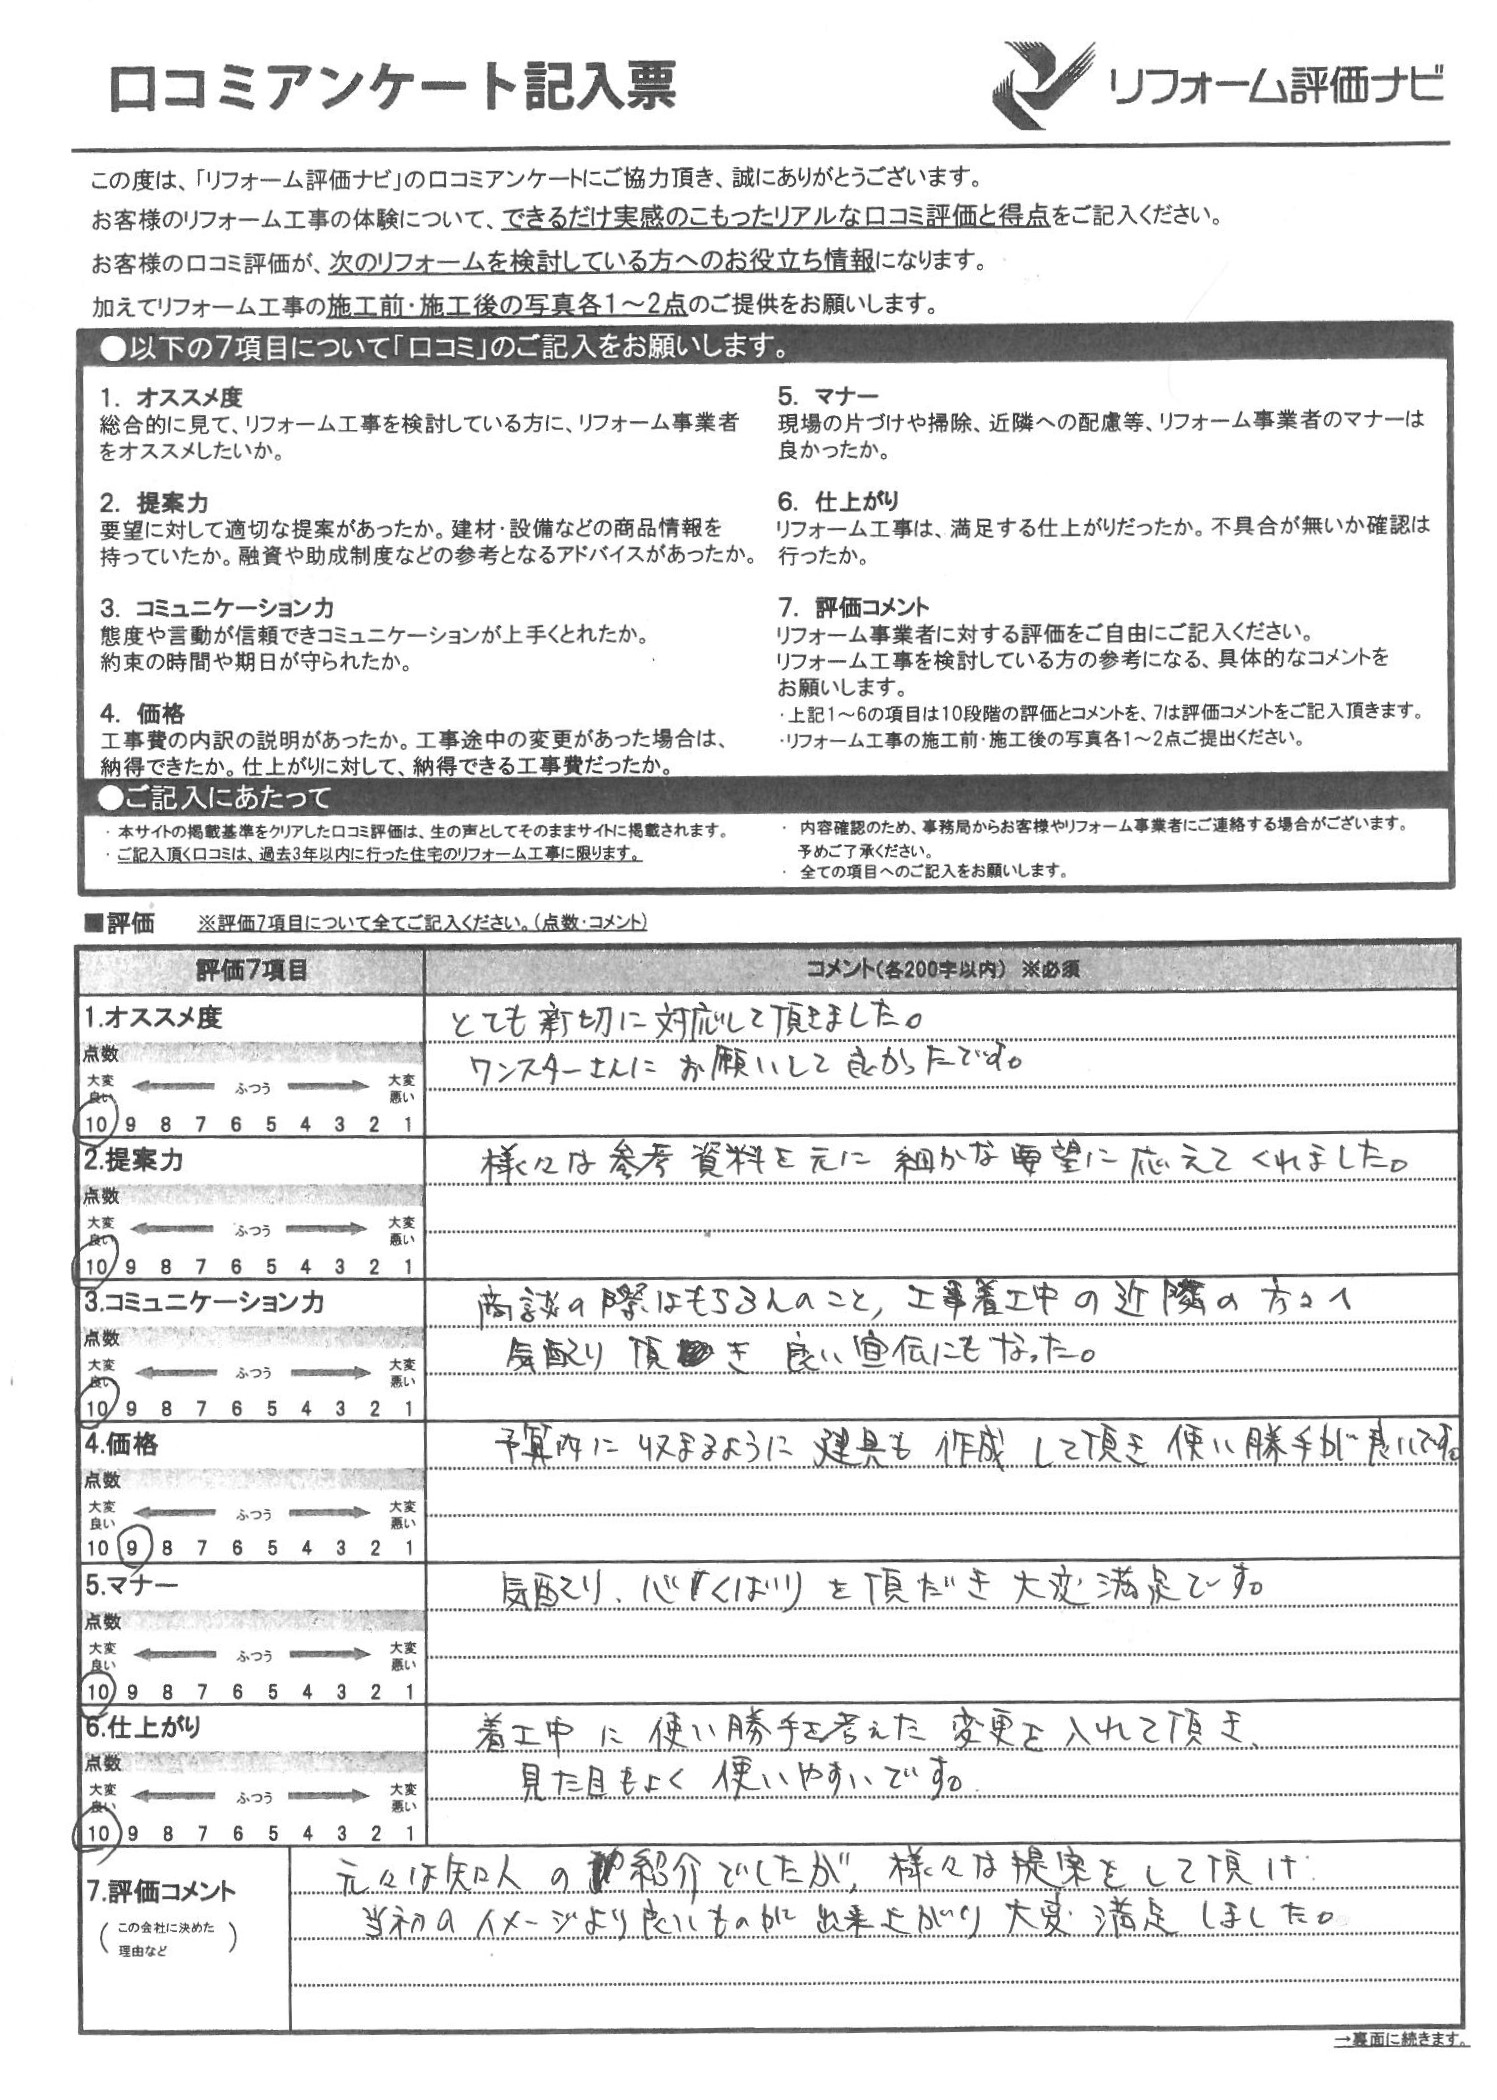 口コミアンケート記入票
リフォーム評価ナビ
この度は、「リフォーム評価ナビ」の口コミアンケートにご協力頂き、誠にありがとうございます。
お客様のリフォーム工事の体験について、できるだけ実感のこもったリアルな口コミ評価と得点をご記入ください。
お客様の口コミ評価が、次のリフォームを検討している方へのお役立ち情報になります。
加えてリフォーム工事の施工前・施工後の写真各1～2点のご提供をお願いします。
●以下の7項目について「口コミ」のご記入をお願いします。
1. オススメ度
総合的に見て、リフォーム工事を検討している方に、リフォーム事業者
をオススメしたいか。
2. 提案力
要望に対して適切な提案があったか。建材・設備などの商品情報を
持っていたか。融資や助成制度などの参考となるアドバイスがあったか。
3. コミュニケーション力
態度や言動が信頼できコミュニケーションが上手くとれたか。
約束の時間や期日が守られたか。
4. 価格
工事費の内訳の説明があったか。工事途中の変更があった場合は、
納得できたか。仕上がりに対して、納得できる工事費だったか。
5. マナー
現場の片づけや掃除、近隣への配慮等、リフォーム事業者のマナーは
良かったか。
6. 仕上がり
リフォーム工事は、満足する仕上がりだったか。不具合が無いか確認は
行ったか。
7. 評価コメント
リフォーム事業者に対する評価をご自由にご記入ください。
リフォーム工事を検討している方の参考になる、具体的なコメントを
お願いします。
・上記1～6の項目は10段階の評価とコメントを、7は評価コメントをご記入頂きます。
・リフォーム工事の施工前・施工後の写真各1～2点ご提出ください。
●ご記入にあたって
・ 本サイトの掲載基準をクリアした口コミ評価は、生の声としてそのままサイトに掲載されます。
・ ご記入頂く口コミは、過去3年以内に行った住宅のリフォーム工事に限ります。
・ 内容確認のため、事務局からお客様やリフォーム事業者にご連絡する場合がございます。
予めご了承ください。
・ 全ての項目へのご記入をお願いします。
■評価 ※評価7項目について全てご記入ください。(点数・コメント)
評価7項目 コメント(各200字以内) ※必須
1.オススメ度
点数
大変良い ふつう 大変悪い
10 9 8 7 6 5 4 3 2 1
とても親切に対応して頂きました。
ワンスターさんにお願いして良かったです。
2.提案力
点数
大変良い ふつう 大変悪い
10 9 8 7 6 5 4 3 2 1
様々な参考資料を元に細かな要望に応えてくれました。
3.コミュニケーション力
点数
大変良い ふつう 大変悪い
10 9 8 7 6 5 4 3 2 1
商談の際はもちろんのこと、工事着工中の近隣の方々へ
気配り頂き良い宣伝にもなった。
4.価格
点数
大変良い ふつう 大変悪い
10 9 8 7 6 5 4 3 2 1
予算内に収まるように建具も作成して頂き使い勝手が良いです。
5.マナー
点数
大変良い ふつう 大変悪い
10 9 8 7 6 5 4 3 2 1
気配り、心くばりを頂だき大変満足です。
6.仕上がり
点数
大変良い ふつう 大変悪い
10 9 8 7 6 5 4 3 2 1
着工中に使い勝手を考えた変更を入れて頂き、
見た目もよく使いやすいです。
7.評価コメント
(この会社に決めた
理由など)
元々は知人の紹介でしたが、様々な提案をして頂け
当初のイメージより良いものが出来上がり大変満足しました。
→裏面に続きます。